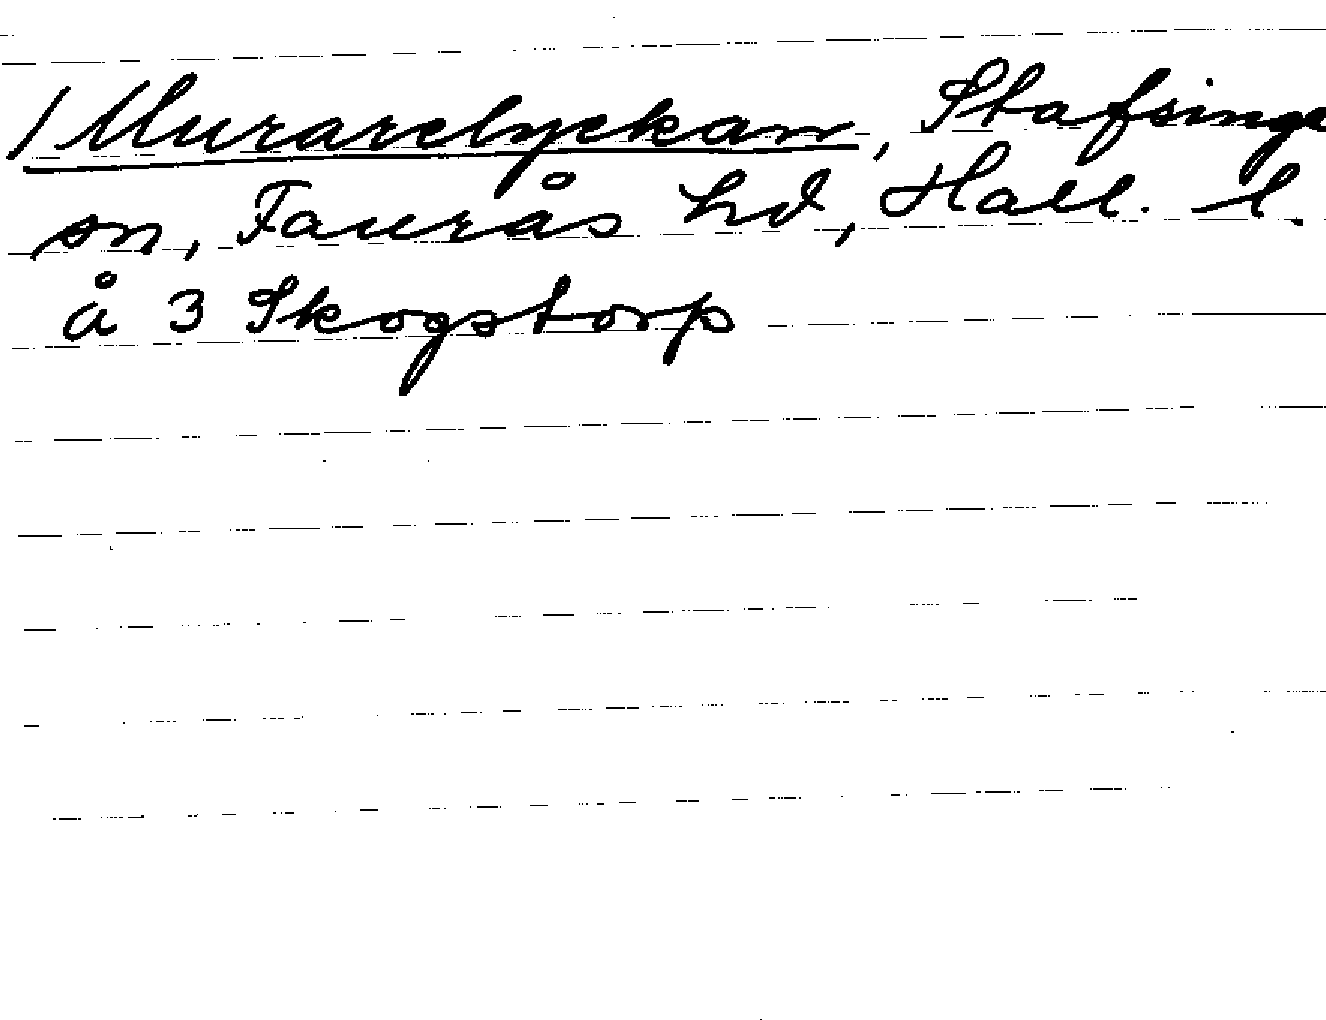 /Murarelyckan, Stafsinge
sn, Faurås hd, Hall. l.
å 3 Skogstorp